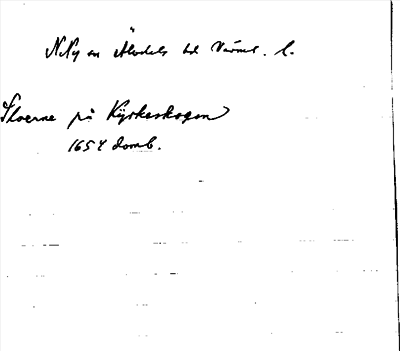 N. Ny en Älvdals hd Värml. l.
Floerne på Kyrkeskogen
1654 domb.